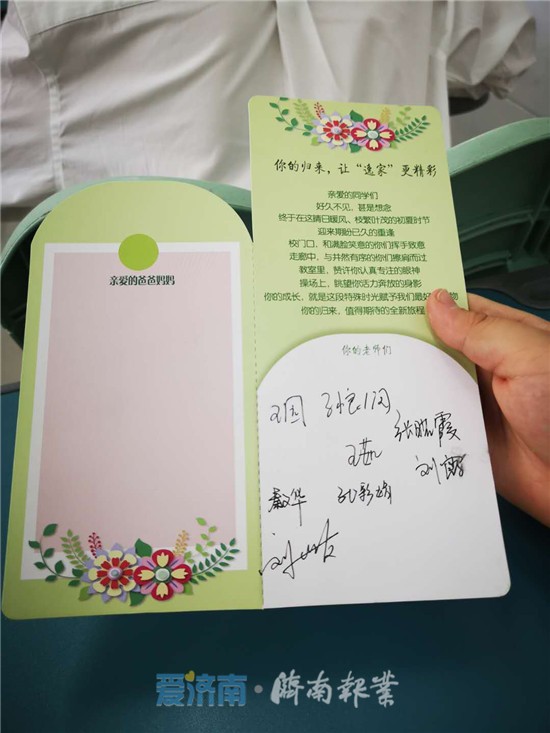 亲爱的爸爸妈妈
你的归来，让“逸家”更精彩
亲爱的同学们
好久不见，甚是想念
终于在这晴日暖风、枝繁叶茂的初夏时节
迎来期盼已久的重逢
校门口，和满脸笑意的你们挥手致意
走廊中，与井然有序的你们擦肩而过
教室里，赞许你认真专注的眼神
操场上，眺望你活力奔放的身影
你的成长，就是这段特殊时光赋予我们最好 物
你的归来，值得期待的全新旅程
你的老师们
张晓霞
孔彩娟
爱济南·济南报业